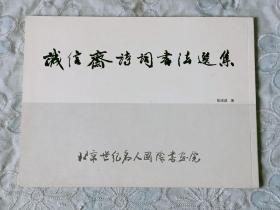 誠信齋詩詞書法選集
北京世纪名人國際書画院